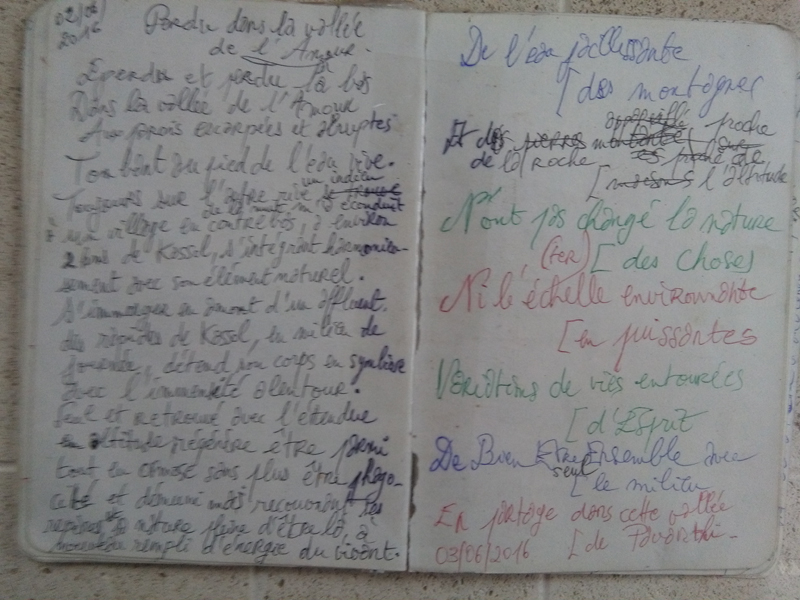 02/06/
2016
Perdu dans la vallée
de l'Amour.
Éperdu et perdu là bas
Dans la vallée de l'Amour
Aux parois escarpées et abruptes
Tombant au pied de l'eau vive.
un indien
Toujours sur l'autre rive
de la nuit m'a éconduit
à un village en contrebas, à environ
2 kms de Kassol, s'intégrant harmonieu-
sement avec son élément naturel.
S'immerger en amont d'un affluent
des rapides de Kassol, en milieu de
journée, détend son corps en symbiose
avec l'immensité alentour.
Seul et retrouvé avec l'étendue
en altitude régénère être parmi
tout en osmose sans plus être phago-
cité et démuni mais recouvrant ses
repères nature pleine d'être là, à
nouveau rempli d'énergie du vivant.
De l'eau jaillissante
[des montagnes
Et des pierres proche
de la roche
[l'altitude
N'ont pas changé la nature
[des choses
(ter)
Ni l'échelle environnante
[en puissantes
Variations de vies entourées
[d'Esprit
De Bien Ensemble avec
seul
[le milieu
En partage dans cette vallée
03/06/2016 [de Parvathi.